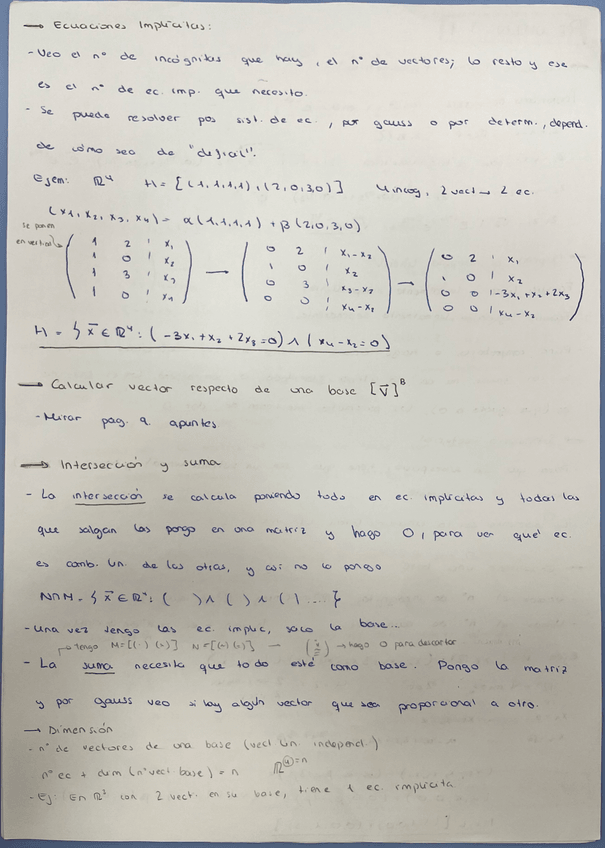 → Ecuaciones Implícitas:
- Veo el nº de incógnitas que hay, el nº de vectores; lo resto y ese
es el nº de ec. imp. que necesito.
- Se puede resolver pos sist. de ec., por gauss o por determ., depend.
de cómo sea de "difícil".
Ejem: ℝ⁴ H = [(1,1,1,1),(2,0,3,0)] 4 incog, 2 vect → 2 ec.
(x1, x2, x3, x4) = α(1,1,1,1) + β(2,0,3,0)
se ponen
en vertical
1 2 | x1 → 0 2 | x1-x2 → 0 2 | x1
1 0 | x2 1 0 | x2 1 0 | x2
1 3 | x3 0 3 | x3-x2 0 0 | -3x1+x2+2x3
1 0 | x4 0 0 | x4-x2 0 0 | x4-x2
H = { x̄ ∈ ℝ⁴: (-3x1+x2+2x3=0) ∧ (x4-x2=0)
→ Calcular vector respecto de una base [v̄]ᴮ
- Mirar pag. 9. apuntes
→ Intersección y suma
- La intersección se calcula poniendo todo en ec. implícitas y todas las
que salgan las pongo en una matriz y hago 0, para ver qué ec.
es comb. lin. de las otras, y así no la pongo
N∩M = { x̄ ∈ ℝⁿ: ( ) ∧ ( ) ∧ ( ) .... }
- Una vez tengo las ec. implic, saco la base...
Tengo M=[(-)(=)] N=[(=)(=)] → → hago 0 para descartar
- La suma necesita que todo esté como base. Pongo la matriz
y por gauss veo si hay algún vector que sea proporcional a otro.
→ Dimensión
- nº de vectores de una base (vect lin. independ.)
nº ec + dim (nº vect. base) = n ℝ④=n
- Ej: En ℝ³ con 2 vect. en su base, tiene 1 ec. implícita